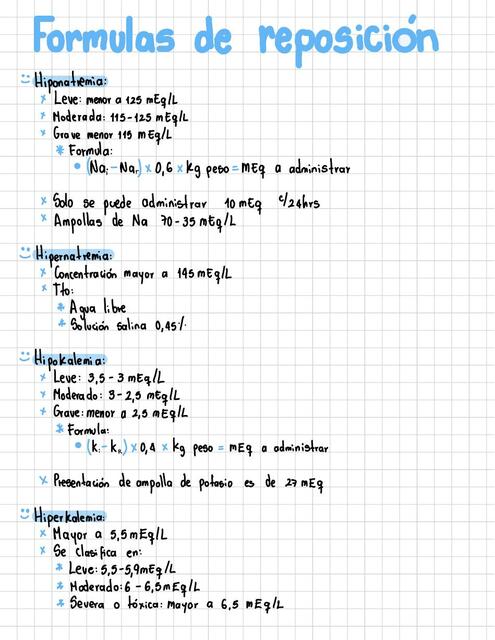 Formulas de reposición
Hiponatremia:
x Leve: menor a 125 mEq/L
x Moderada: 115-125 mEq/L
x Grave menor 115 mEq/L
* Formula:
• (Naᵢ - Naᵣ) x 0,6 x kg peso = mEq a administrar
x Solo se puede administrar 10 mEq c/24hrs
x Ampollas de Na 70-35 mEq/L
Hipernatremia:
x Concentración mayor a 145 mEq/L
x Tto:
* Agua libre
* Solución salina 0,45%
Hipokalemia:
x Leve: 3,5-3 mEq/L
x Moderado: 3-2,5 mEq/L
x Grave: menor a 2,5 mEq/L
* Formula:
• (kᵢ - kᵣ) x 0,4 x kg peso = mEq a administrar
x Presentación de ampolla de potasio es de 27 mEq
Hiperkalemia:
x Mayor a 5,5 mEq/L
x Se clasifica en:
* Leve: 5,5-5,9 mEq/L
* Moderado: 6-6,5 mEq/L
* Severa o tóxica: mayor a 6,5 mEq/L